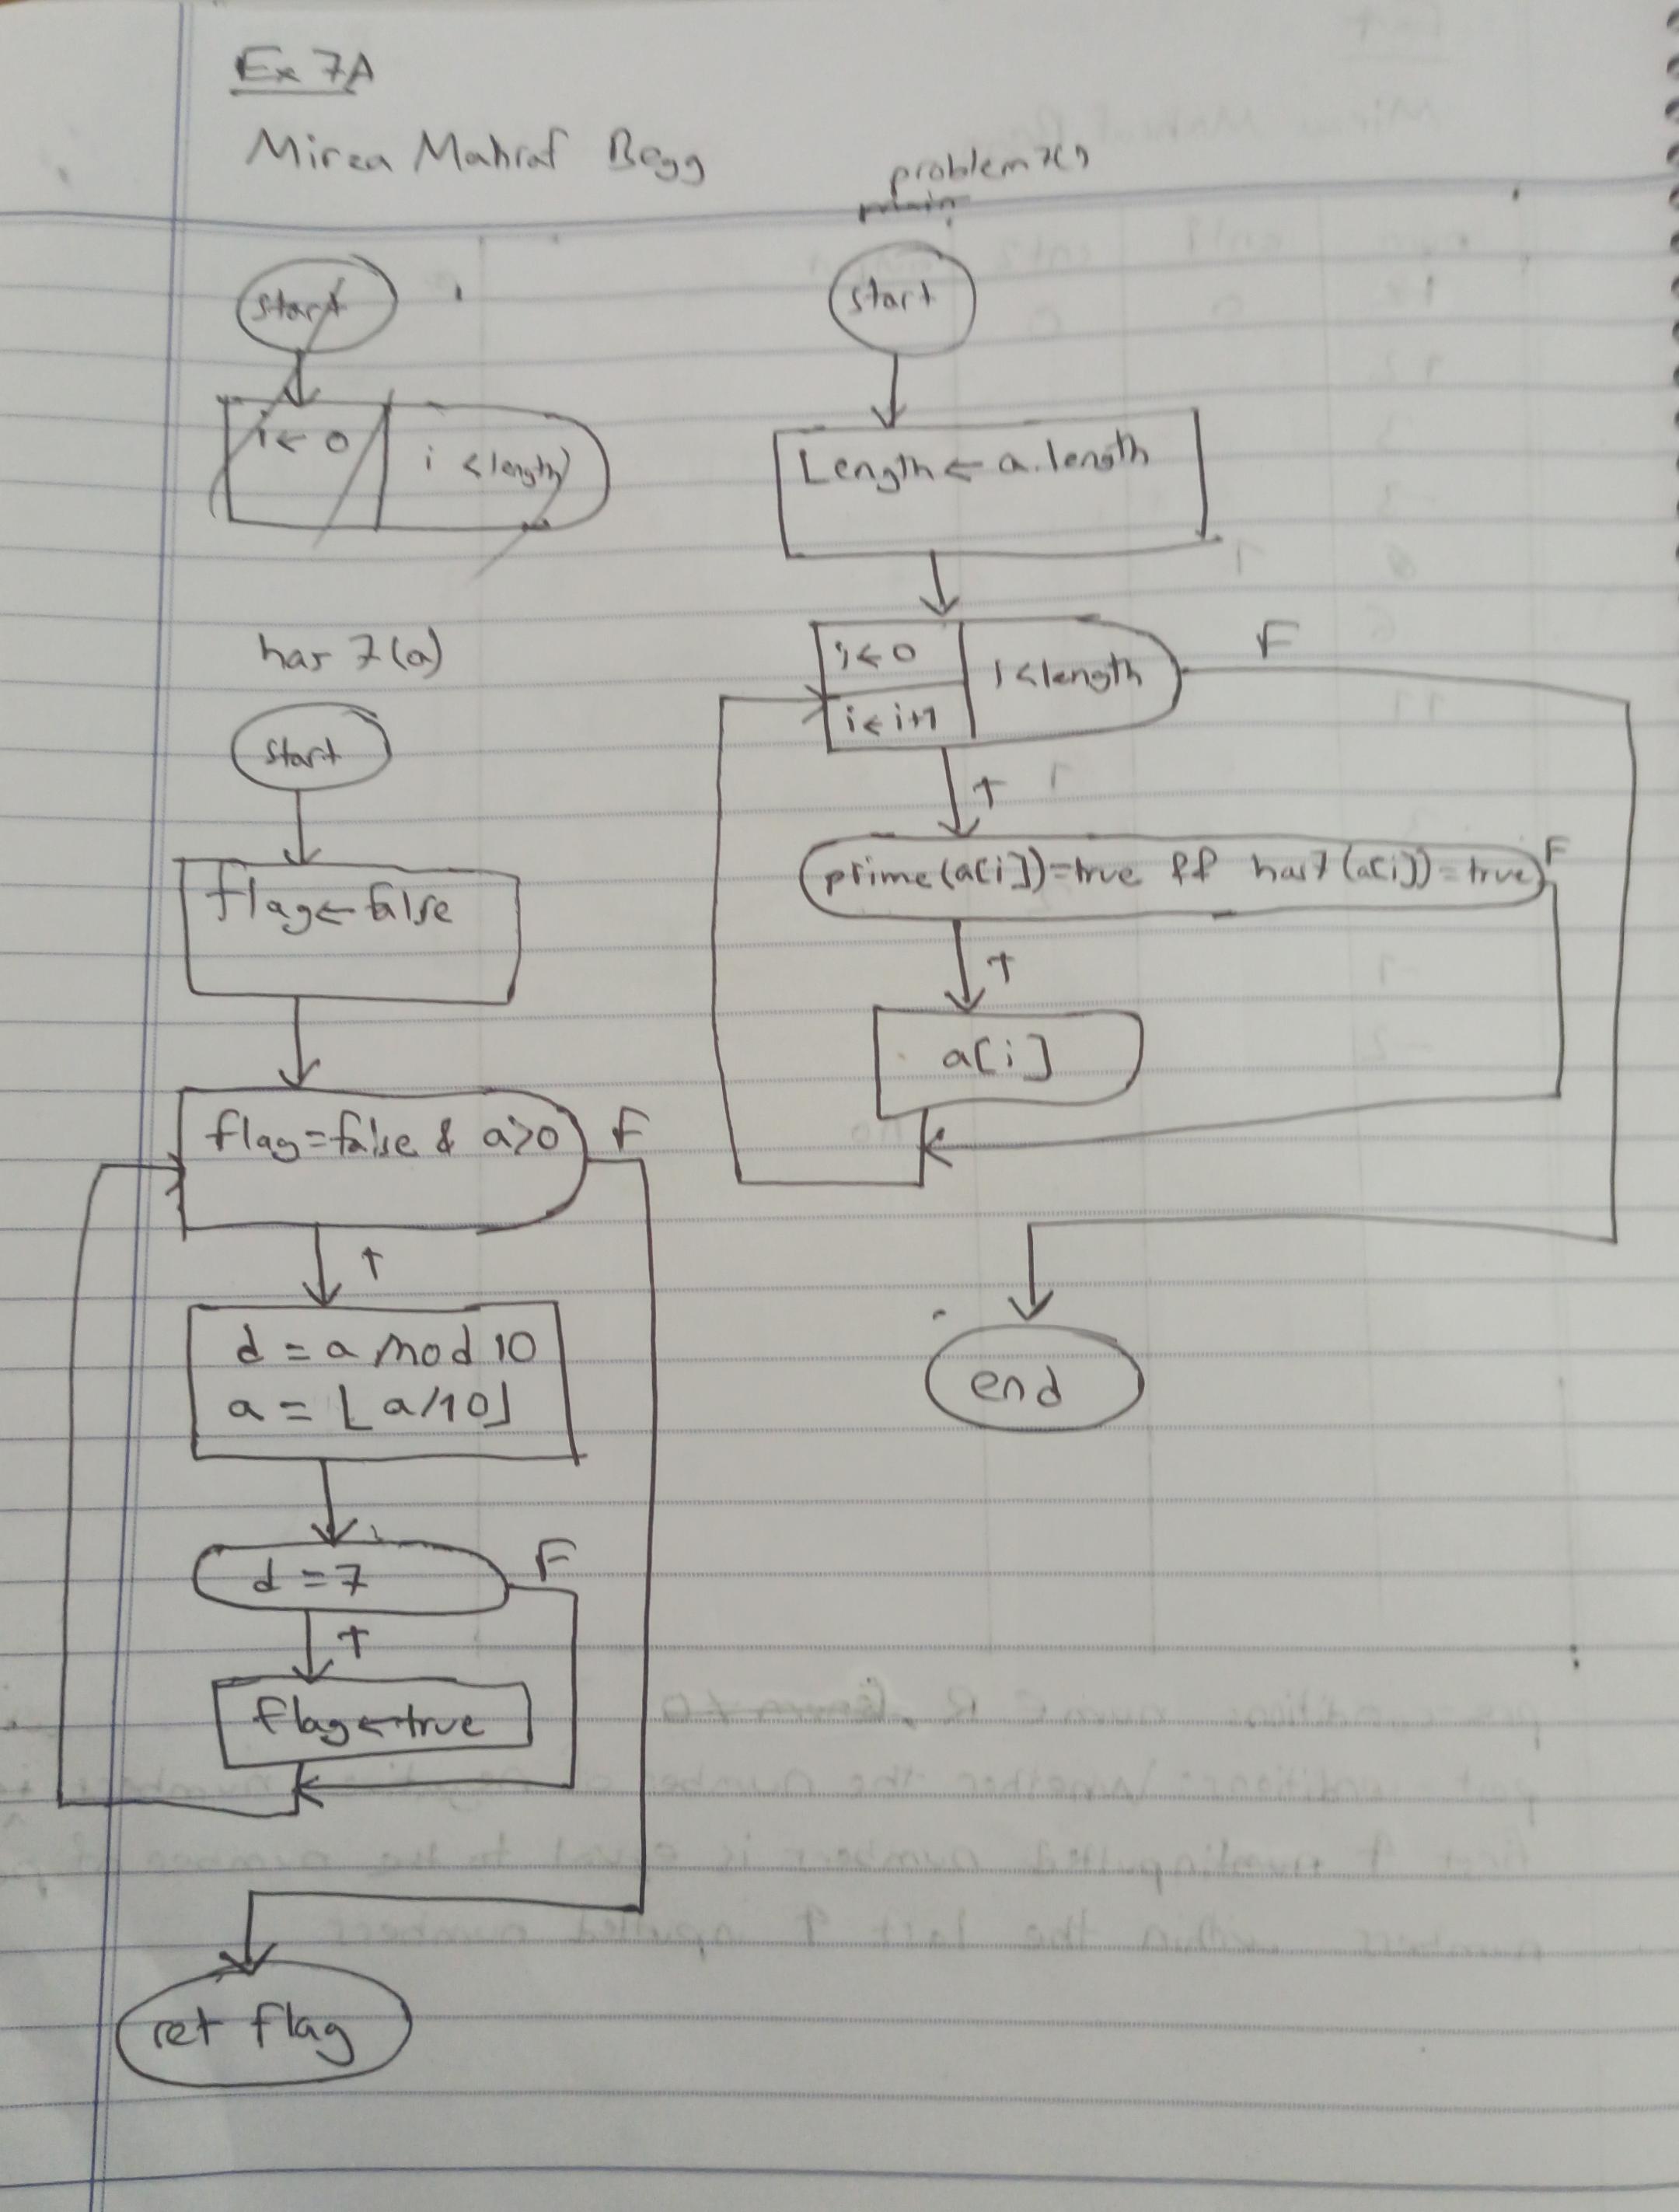 Ex 7A
Mirza Mahraf Begg
start
i ← 0
i < length
has 7(a)
start
flag ← false
flag = false & a>0
F
T
d = a mod 10
a = ⌊a/10⌋
d = 7
F
T
flag ← true
ret flag
start
Length ← a.length
i ← 0
i ← i+1
i < length
F
T
prime(a[i])=true && has7(a[i])=true
F
T
a[i]
end